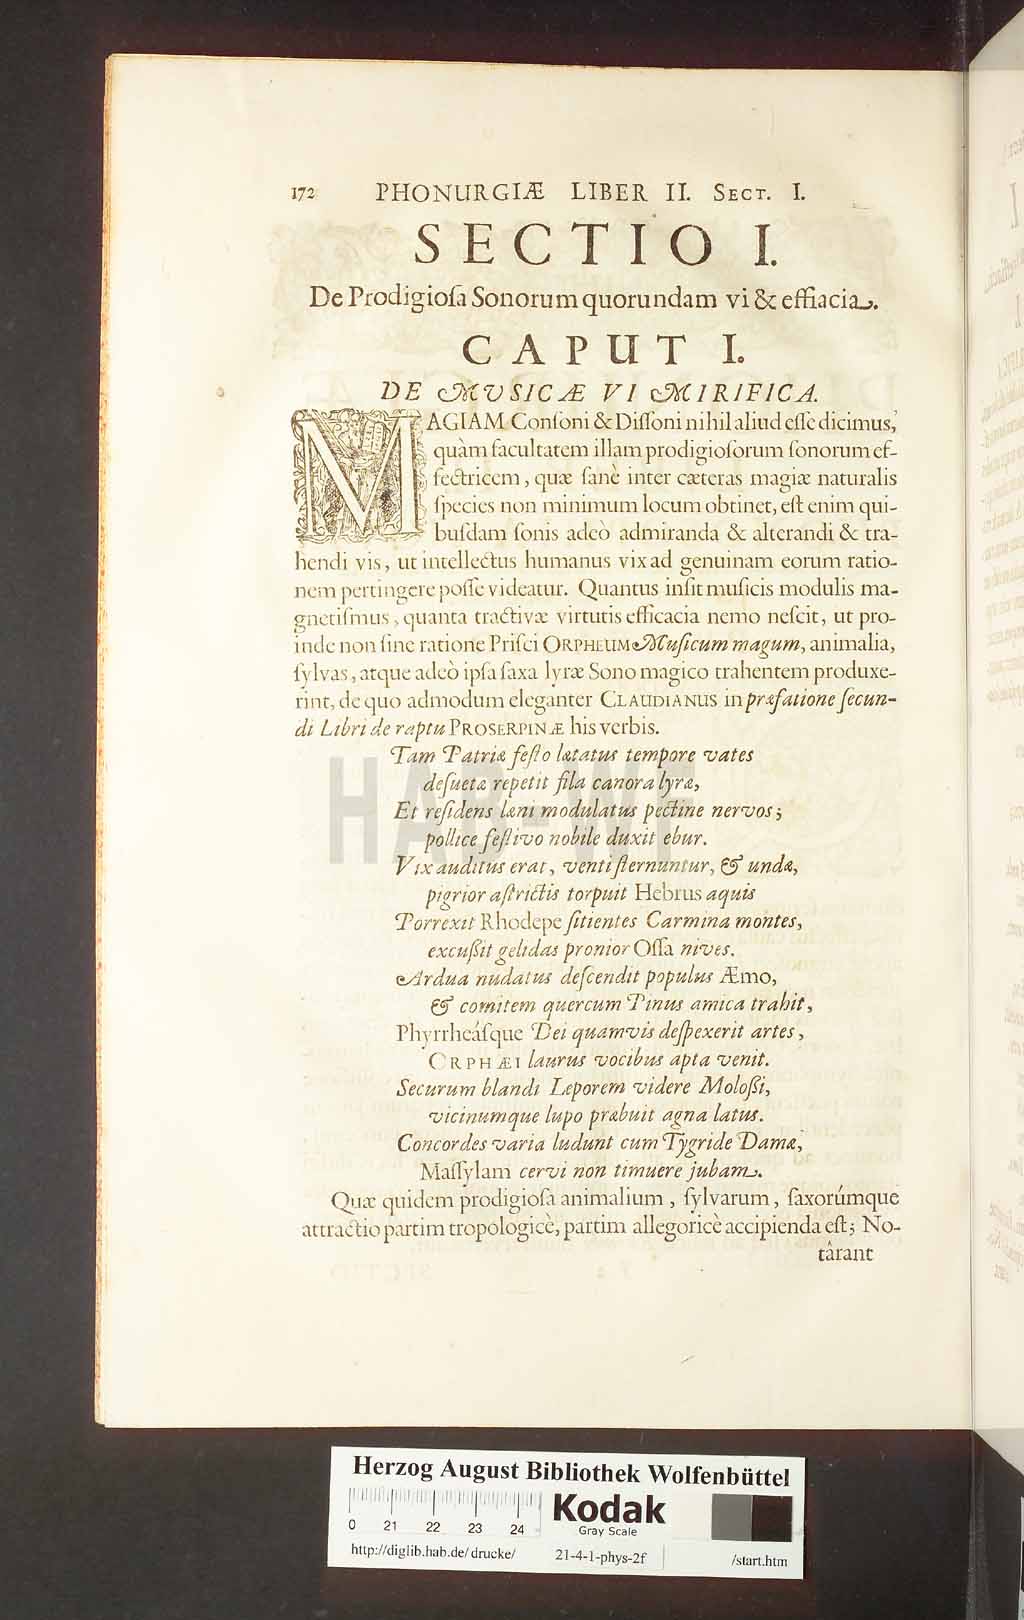 172 PHONURGIÆ LIBER II. SECT. I.
SECTIO I.
De Prodigioſa Sonorum quorundam vi & effiacia.
CAPUT I.
DE MUSICÆ VI MIRIFICA.
MAGIAM Conſoni & Diſſoni nihil aliud eſſe dicimus,
quàm facultatem illam prodigioſorum ſonorum ef-
fectricem, quæ ſanè inter cæteras magiæ naturalis
ſpecies non minimum locum obtinet, eſt enim qui-
buſdam ſonis adeò admiranda & alterandi & tra-
hendi vis, ut intellectus humanus vix ad genuinam eorum ratio-
nem pertingere poſſe videatur. Quantus inſit muſicis modulis ma-
gnetiſmus, quanta tractivæ virtutis efficacia nemo neſcit, ut pro-
inde non ſine ratione Priſci ORPHEUM Muſicum magum, animalia,
ſylvas, atque adeò ipſa ſaxa lyræ Sono magico trahentem produxe-
rint, de quo admodum eleganter CLAUDIANUS in præfatione ſecun-
di Libri de raptu PROSERPINÆ his verbis.
Tam Patriæ feſto lætatus tempore vates
deſuetæ repetit fila canora lyræ,
Et reſidens læni modulatus pectine nervos;
pollice feſtivo nobile duxit ebur.
Vix auditus erat, venti ſternuntur, & undæ,
pigrior aſtrictis torpuit Hebrus aquis
Porrexit Rhodepe ſitientes Carmina montes,
excuſſit gelidas pronior Oſſa nives.
Ardua nudatus deſcendit populus Æmo,
& comitem quercum Pinus amica trahit,
Phyrrheáſque Dei quamvis deſpexerit artes,
ORPHÆI laurus vocibus apta venit.
Securum blandi Leporem videre Moloſſi,
vicinumque lupo præbuit agna latus.
Concordes varia ludunt cum Tygride Damæ,
Maſſylam cervi non timuere jubam.
Quæ quidem prodigioſa animalium, ſylvarum, ſaxorúmque
attractio partim tropologicè, partim allegoricè accipienda eſt; No-
târant
HAB-WF
Herzog August Bibliothek Wolfenbüttel
0 21 22 23 24
Kodak
Gray Scale
http://diglib.hab.de/drucke/ 21-4-1-phys-2f /start.htm